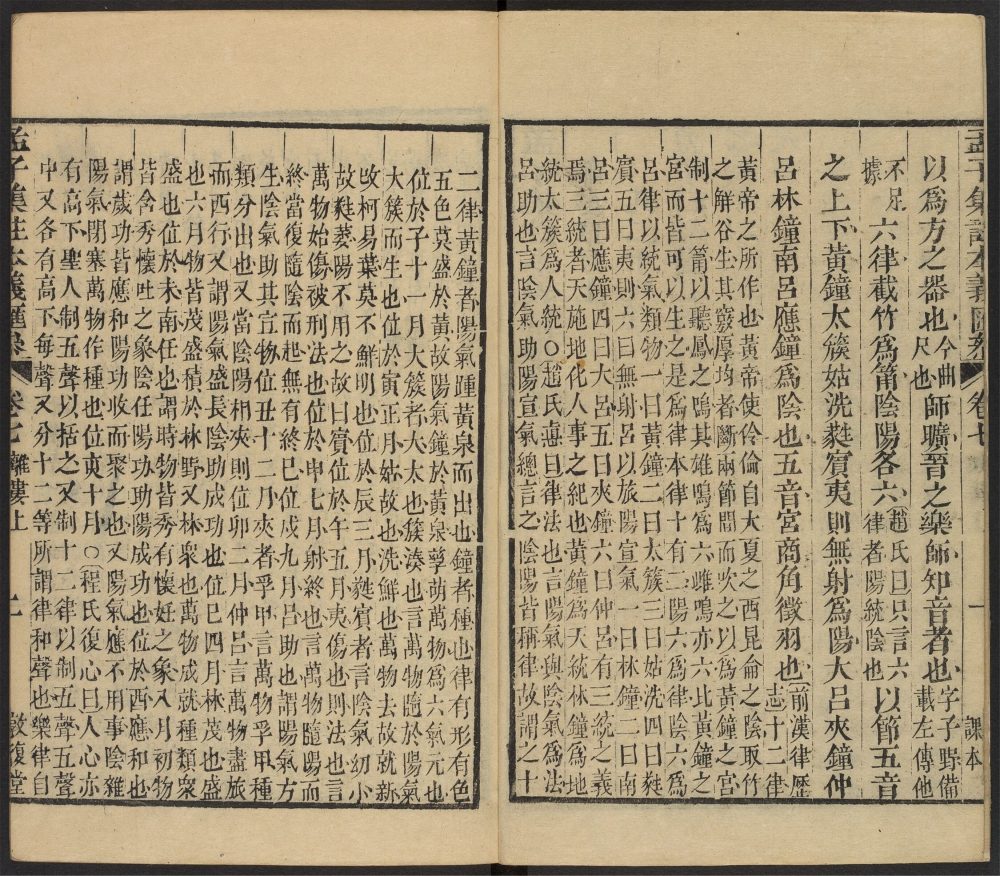 孟子集註本義匯參 卷七 一 課本
以爲方之器也今曲尺也師曠晉之樂師知音者也字子野備載左傳他
不足據六律截竹爲筩陰陽各六趙氏曰只言六律者陽統陰也以節五音
之上下黃鐘太簇姑洗蕤賓夷則無射爲陽大呂夾鐘仲
呂林鐘南呂應鐘爲陰也五音宮商角徵羽也前漢律歷志十二律
黃帝之所作也黃帝使伶倫自大夏之西昆侖之陰取竹
之解谷生其竅厚均者斷兩節間而吹之以爲黃鐘之宮
制十二筩以聽鳳之鳴其雄鳴爲六雌鳴亦六比黃鐘之
宮而皆可以生之是爲律本律十有二陽六爲律陰六爲
呂律以統氣類物一曰黃鐘二曰太簇三曰姑洗四曰蕤
賓五曰夷則六曰無射呂以旅陽宣氣一曰林鐘二曰南
呂三曰應鐘四曰大呂五曰夾鐘六曰仲呂有三統之義
焉三統者天施地化人事之紀也黃鐘爲天統林鐘爲地
統太簇爲人統○趙氏悳曰律法也言陽氣與陰氣爲法
呂助也言陰氣助陽宣氣總言之陰陽皆稱律故謂之十
二律黃鐘者陽氣踵黃泉而出也鐘者種也律有形有色
五色莫盛於黃故陽氣鐘於黃泉孳萌萬物爲六氣元也
位於子十一月太簇者太大也簇湊也言萬物隨於陽氣
大簇而生也位於寅正月姑故也洗鮮也萬物去故就新
攺柯易葉莫不鮮明也位於辰三月蕤賓者言陰氣幼小
故蕤萎陽不用之故曰賓位於午五月夷傷也則法也言
萬物始傷被刑法也位於申七月射終也言萬物隨陽而
終當復隨陰而起無有終已位戌九月呂助也謂陽氣方
生陰氣助其宣物位丑十二月夾者孚甲言萬物孚甲種
類分出也又當陰陽相夾則位卯二月仲呂言萬物盡旅
而西行又謂陽氣盛長陰助成功也位巳四月林茂也盛
也六月物皆茂盛積於林野又林衆也萬物成就種類衆
盛也位於未南任也謂時物皆秀有懷妊之象八月初物
皆含秀懷吐之象陰任陽功助陽成功也位於酉應和也
謂歲功皆應和陽功收而聚之也又陽氣應不用事陰雜
陽氣閉塞萬物作種也位亥十月○程氏復心曰人心亦
有高下聖人制五聲以括之又制十二律以制五聲五聲
中又各有高下每聲又分十二等所謂律和聲也樂律自
孟子集註本義匯參 卷七 離婁上 二 敦復堂